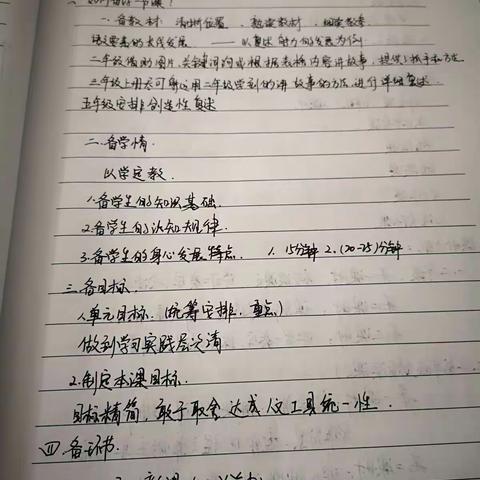 一、如何备好一节课？
一、备教材 清晰位置、熟读教材、细读教参
语文要素的大致发展 —— 以复述能力的发展为例
二年级借助图片、关键词句或根据表格内容讲故事，提供了抓手和方法
三年级上册尽可能运用二年级学到的讲故事的方法进行详细复述
五年级安排创造性复述
二、备学情.
以学定教.
1.备学生的知识基础.
2.备学生的认知规律.
3.备学生的身心发展特点. 1. 15分钟 2.(20-25)分钟
三.备目标.
1.单元目标.(统筹安排、重点)
做到学习实践层次清
2.制定本课目标.
目标精简，敢于取舍 达成人文工具统一性.
四.备环节.